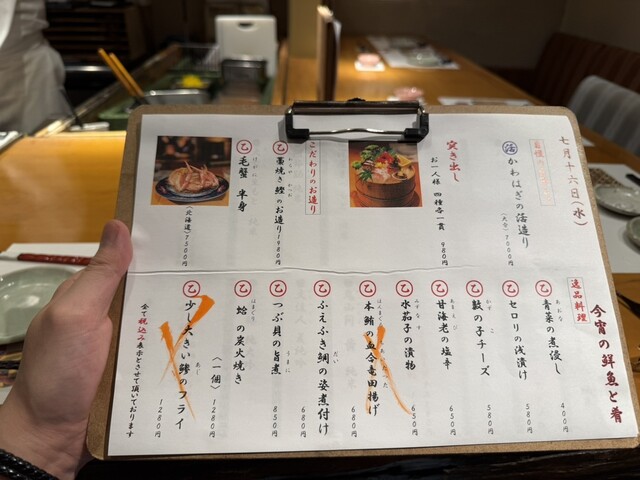 七月十六日(水)
今宵の鮮魚と肴
活 かわはぎの活造り
(大分)7000円
突き出し
お一人様 四種各一貫
980円
こだわりのお造り
乙 藁焼き鰹のお造り
わらやき かつお
1980円
乙 毛蟹 半身
けがに はんみ
(北海道)7500円
逸品料理
乙 青菜の煮浸し
あおな
400円
乙 セロリの浅漬け
580円
乙 鼓の子チーズ
580円
乙 甘海老の塩辛
あまえび
650円
乙 水茄子の漬物
みずなす
650円
乙 本鮪の血合竜田揚げ
ほんまぐろ
680円
乙 ふえふき鯛の姿煮付け
だい
680円
乙 つぶ貝の旨煮
うまに
850円
乙 蛤の炭火焼き
はまぐり
〈一個〉
1280円
乙 少し大きい鯵のフライ
あじ
1280円
全て税込み表示とさせて頂いております